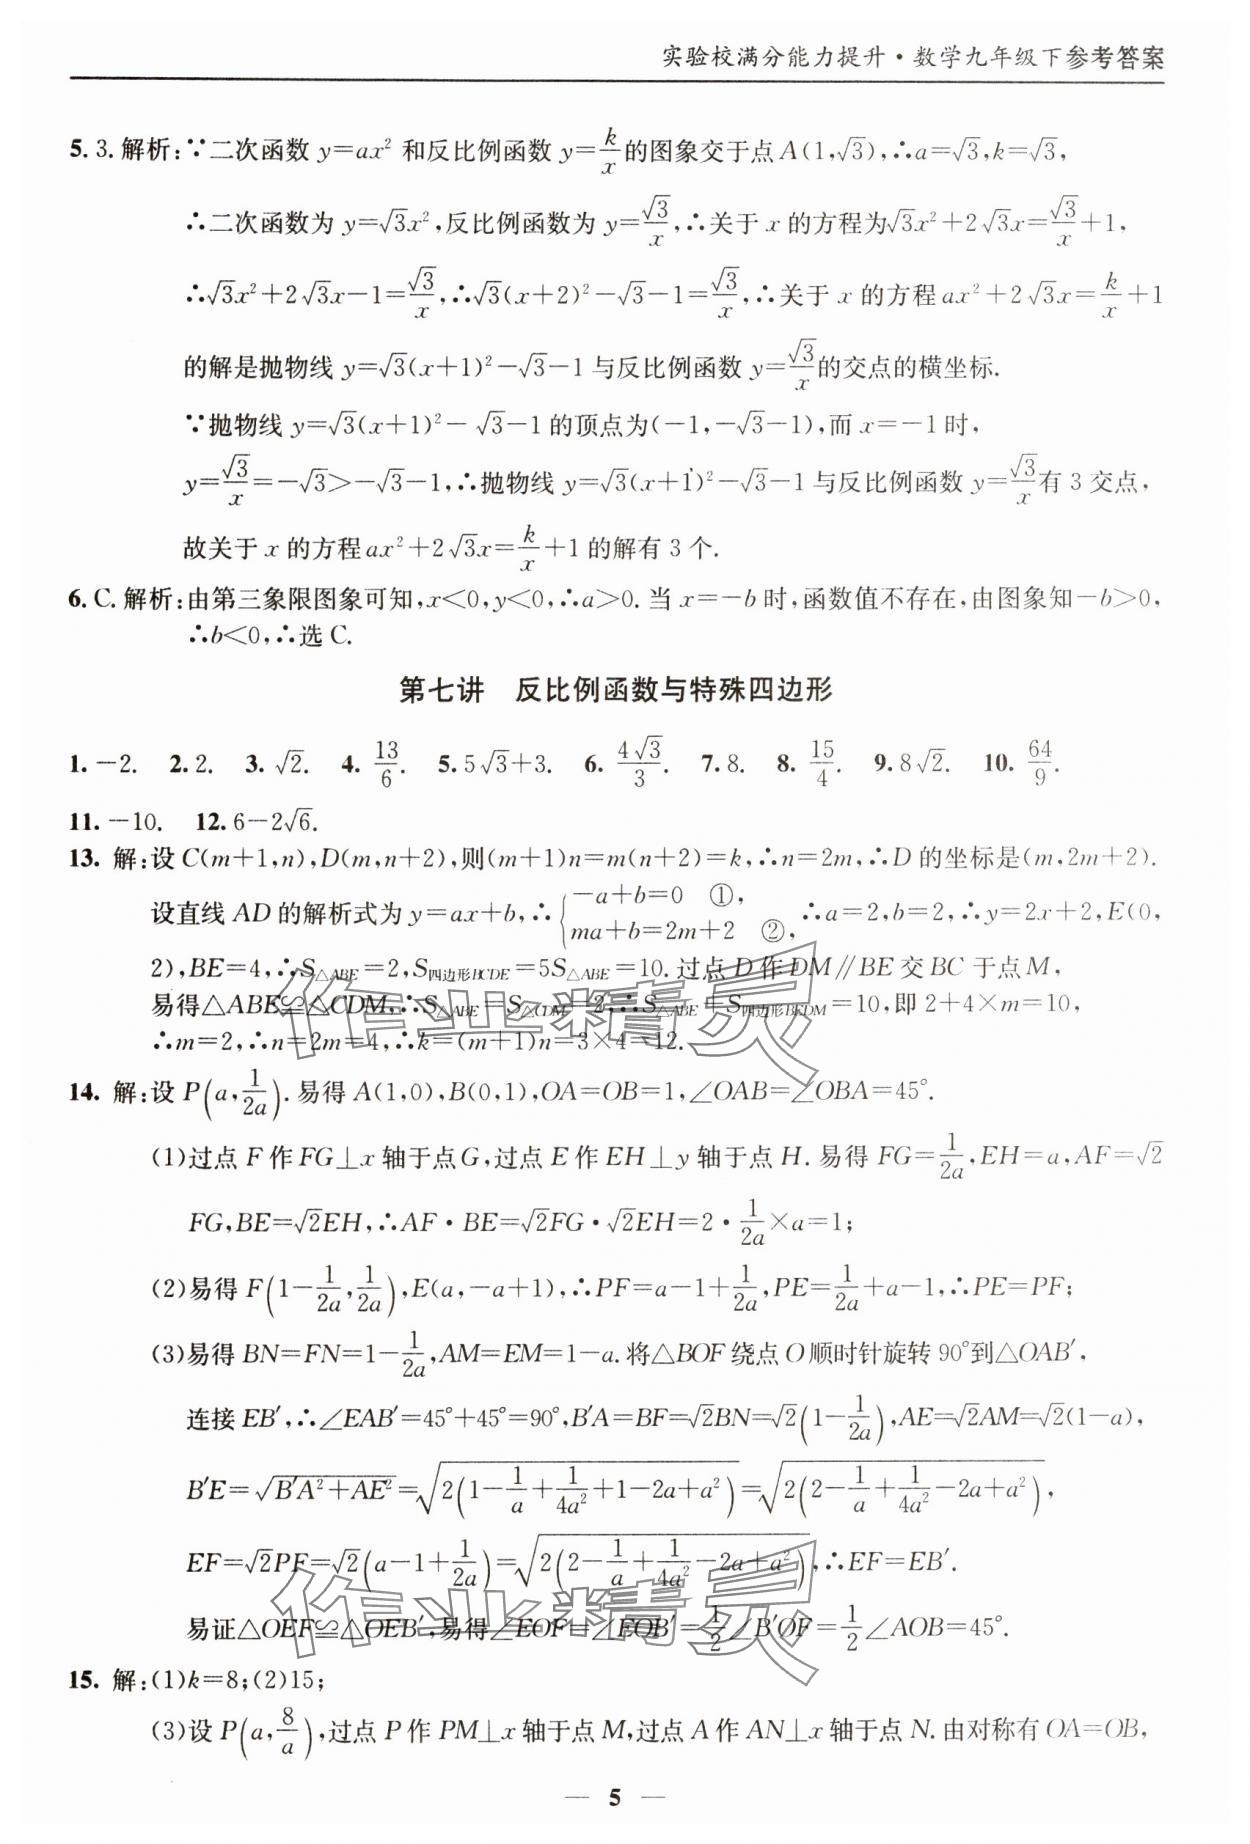 实验校满分能力提升·数学九年级下参考答案
5. 3. 解析:∵二次函数 y=ax² 和反比例函数 y=k/x 的图象交于点 A(1,√3),∴a=√3,k=√3,
∴二次函数为 y=√3x²,反比例函数为 y=√3/x,∴关于 x 的方程为√3x²+2√3x=√3/x+1,
∴√3x²+2√3x-1=√3/x,∴√3(x+2)²-√3-1=√3/x,∴关于 x 的方程 ax²+2√3x=k/x+1
的解是抛物线 y=√3(x+1)²-√3-1 与反比例函数 y=√3/x 的交点的横坐标.
∵抛物线 y=√3(x+1)²-√3-1 的顶点为(-1,-√3-1),而 x=-1 时,
y=√3/x=-√3>-√3-1,∴抛物线 y=√3(x+1)²-√3-1 与反比例函数 y=√3/x 有 3 交点,
故关于 x 的方程 ax²+2√3x=k/x+1 的解有 3 个.
6. C. 解析:由第三象限图象可知,x<0,y<0,∴a>0. 当 x=-b 时,函数值不存在,由图象知-b>0,
∴b<0,∴选 C.
第七讲 反比例函数与特殊四边形
1. -2. 2. 2. 3. √2. 4. 13/6. 5. 5√3+3. 6. 4√3/3. 7. 8. 8. 15/4. 9. 8√2. 10. 64/9.
11. -10. 12. 6-2√6.
13. 解:设 C(m+1,n),D(m,n+2),则(m+1)n=m(n+2)=k,∴n=2m,∴D 的坐标是(m,2m+2).
设直线 AD 的解析式为 y=ax+b,∴{-a+b=0 ①, ma+b=2m+2 ②, ∴a=2,b=2,∴y=2x+2,E(0,
2),BE=4,∴S△ABE=2,S四边形BCDE=5S△ABE=10. 过点 D 作 DM∥BE 交 BC 于点 M,
易得△ABE≌△CDM,∴S△ABE=S△CDM=2,∴S△ABE+S四边形BEDM=10,即 2+4×m=10,
∴m=2,∴n=2m=4,∴k=(m+1)n=3×4=12.
14. 解:设 P(a,1/2a). 易得 A(1,0),B(0,1),OA=OB=1,∠OAB=∠OBA=45°.
(1)过点 F 作 FG⊥x 轴于点 G,过点 E 作 EH⊥y 轴于点 H. 易得 FG=1/2a,EH=a,AF=√2
FG,BE=√2EH,∴AF·BE=√2FG·√2EH=2·1/2a×a=1;
(2)易得 F(1-1/2a,1/2a),E(a,-a+1),∴PF=a-1+1/2a,PE=1/2a+a-1,∴PE=PF;
(3)易得 BN=FN=1-1/2a,AM=EM=1-a. 将△BOF 绕点 O 顺时针旋转 90°到△OAB′,
连接 EB′,∴∠EAB′=45°+45°=90°,B′A=BF=√2BN=√2(1-1/2a),AE=√2AM=√2(1-a),
B′E=√(B′A²+AE²)=√(2(1-1/a+1/4a²+1-2a+a²))=√(2(2-1/a+1/4a²-2a+a²)),
EF=√2PF=√2(a-1+1/2a)=√(2(2-1/a+1/4a²-2a+a²)),∴EF=EB′.
易证△OEF≌△OEB′,易得∠EOF=∠EOB′=1/2∠B′OF=1/2∠AOB=45°.
15. 解:(1)k=8;(2)15;
(3)设 P(a,8/a),过点 P 作 PM⊥x 轴于点 M,过点 A 作 AN⊥x 轴于点 N. 由对称有 OA=OB,
— 5 —
作业精灵
作业精灵